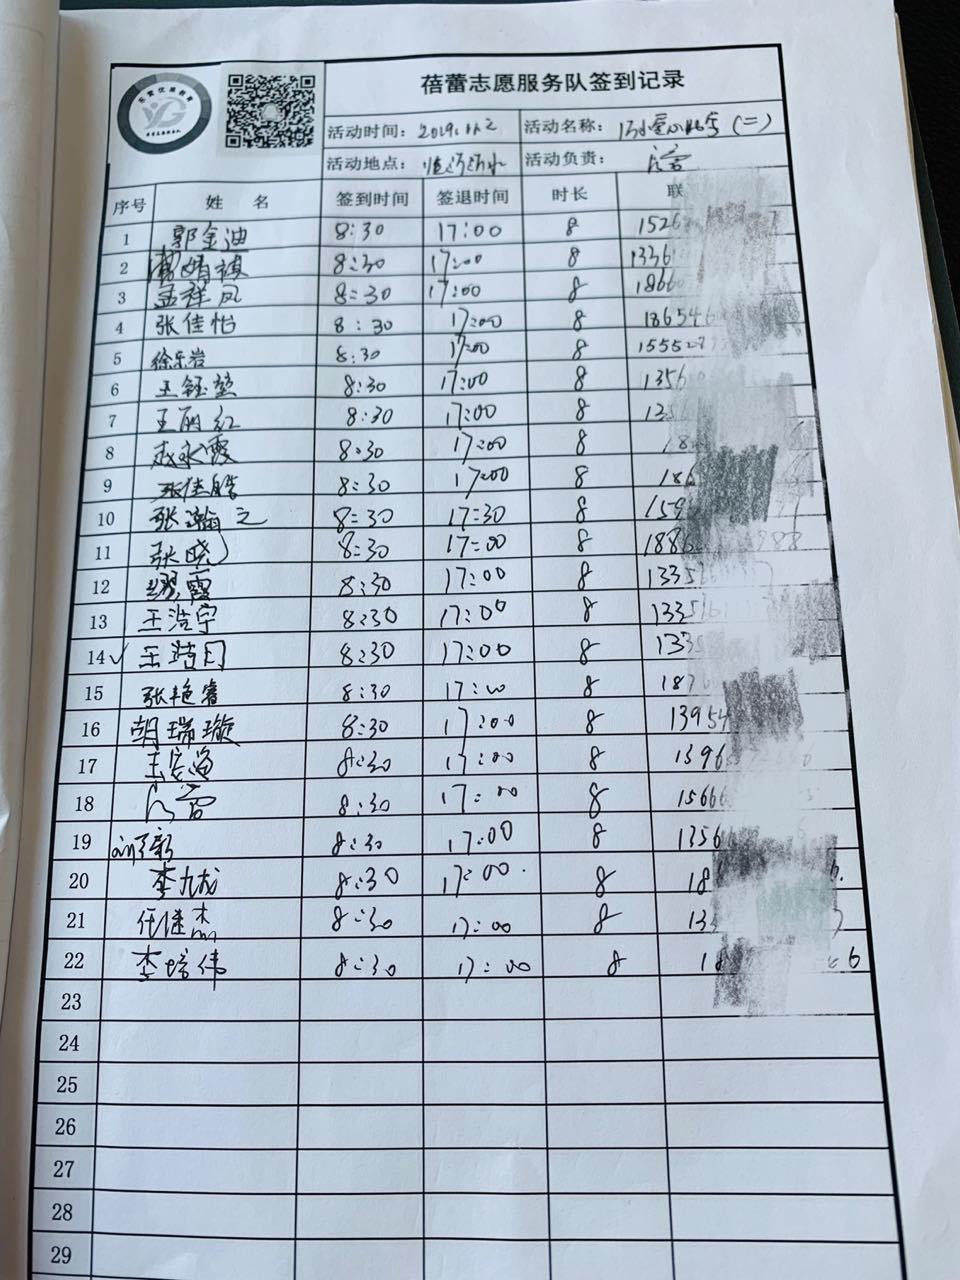 蓓蕾志愿服务队签到记录
活动时间：2019.11.2 活动名称： (二)
活动地点： 活动负责：
序号 姓 名 签到时间 签退时间 时长 联
1 郭金迪 8:30 17:00 8 1526
2 婧祺 8:30 17:00 8 1336
3 孟祥凤 8:30 17:00 8 1866
4 张佳怡 8:30 17:00 8 18654
5 徐乐岩 8:30 17:00 8 1555
6 王钰堃 8:30 17:00 8 1356
7 王丽红 8:30 17:00 8 135
8 赵永霞 8:30 17:00 8 18
9 张佳皓 8:30 17:00 8 186
10 张瀚之 8:30 17:30 8 159
11 张晓 8:30 17:00 8 1886 988
12 霞 8:30 17:00 8 1335
13 王浩宇 8:30 17:00 8 1335
14 王 8:30 17:00 8 133
15 张艳睿 8:30 17:00 8 187
16 胡瑞璇 8:30 17:00 8 13954
17 王 8:30 17:00 8 1396
18 8:30 17:00 8 15666
19 新 8:30 17:00 8 1356
20 李九龙 8:30 17:00 8 18
21 任继杰 8:30 17:00 8 133
22 李培伟 8:30 17:00 8 18 6
23
24
25
26
27
28
29